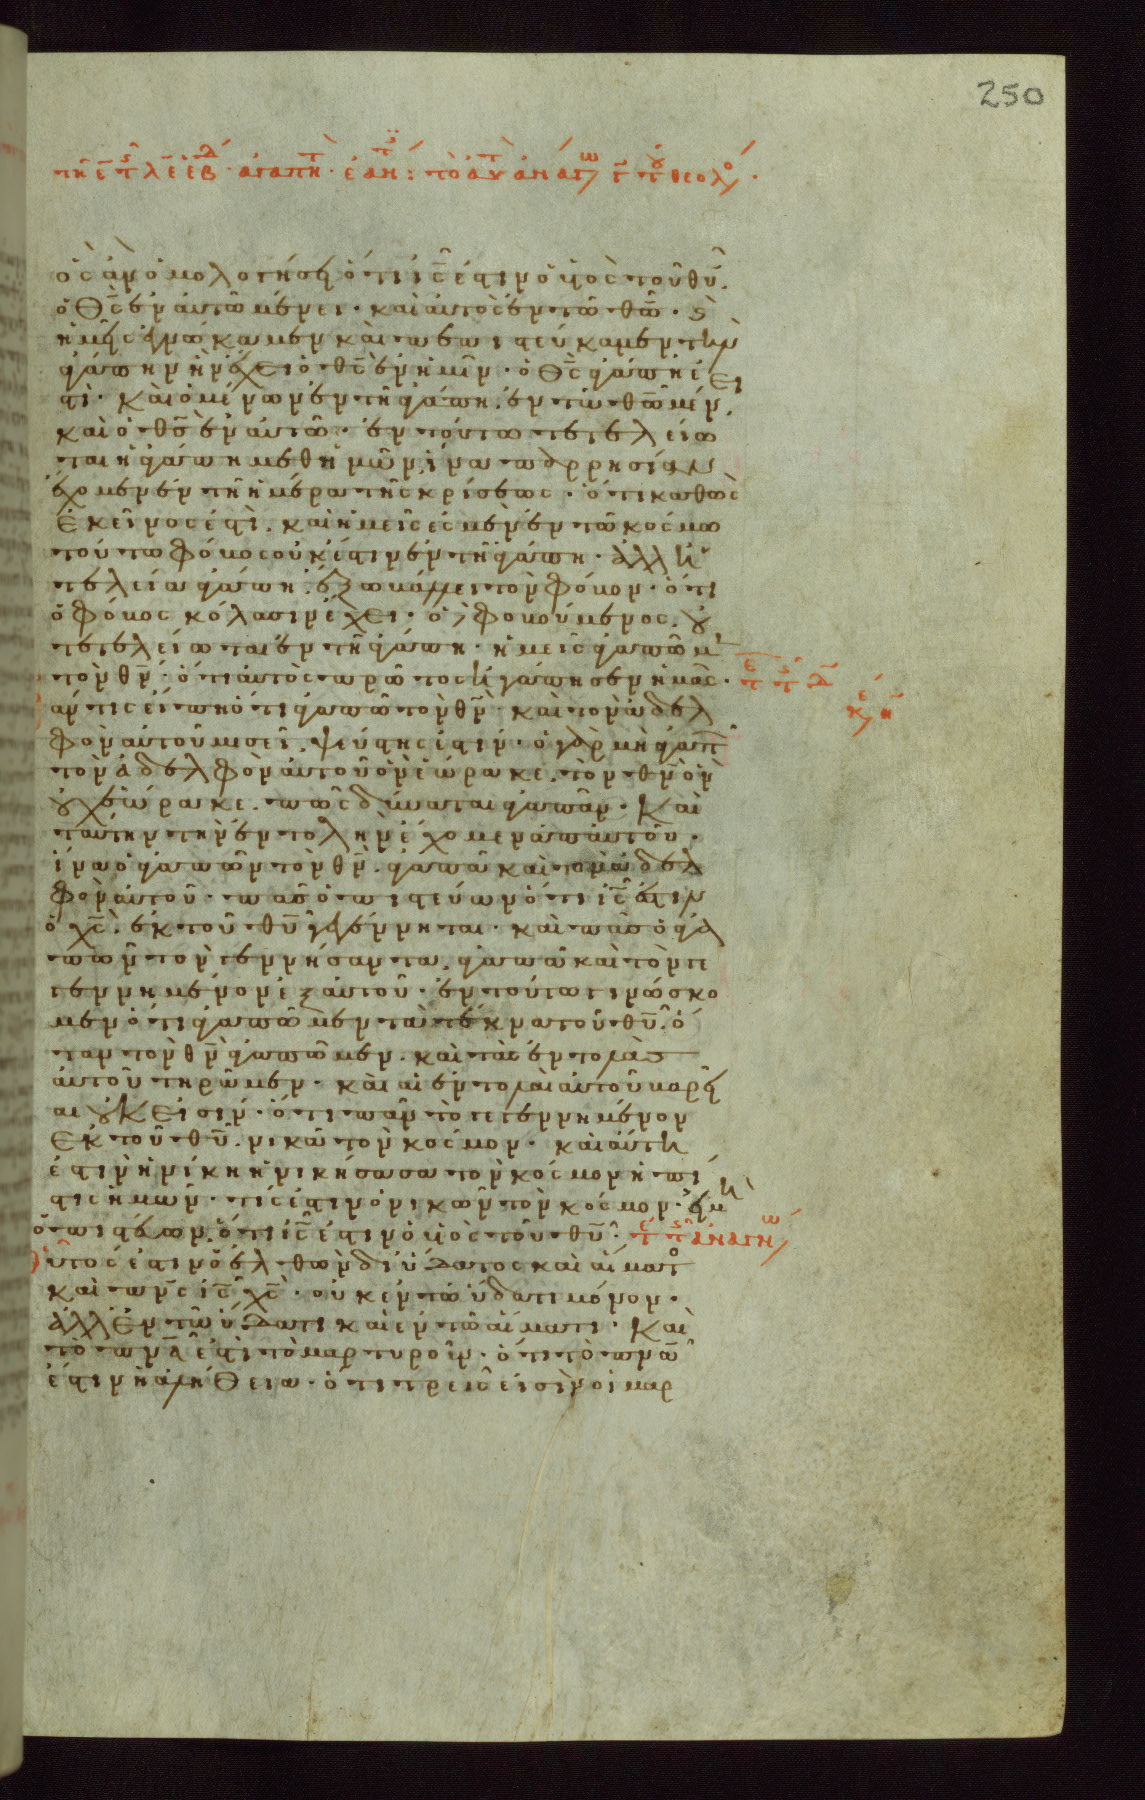 250
ὃς ἂν ὁμολογήσῃ ὅτι ις ἐστιν ὁ υἱὸς τοῦ θυ.
ὁ θς ἐν αὐτῶ μένει· καὶ αὐτὸς ἐν τῶ θω· κ
ἡμεῖς ἐγνώκαμεν καὶ πεπιστεύκαμεν τὴν
ἀγάπην ἣν ἔχει ὁ θς ἐν ἡμῖν· ὁ θς ἀγάπη ἐ
στὶ· καὶ ὁ μένων ἐν τῇ ἀγάπη, ἐν τῶ θω μέν
καὶ ὁ θς ἐν αὐτῶ· ἐν τούτω τετελείω
ται ἡ ἀγάπη μεθ ἡμῶν, ἵνα παρρησίαν
ἔχομεν ἐν τῇ ἡμέρα τῆς κρίσεως· ὅτι καθὼς
ἐκεῖνος ἐστὶ, καὶ ἡμεῖς ἐσμὲν ἐν τῶ κόσμω
τούτω φόβος οὐκ ἔστιν ἐν τῇ ἀγάπη· ἀλλ ἡ
τελεία ἀγάπη ἔξω βάλλει τὸν φόβον· ὅτι
ὁ φόβος κόλασιν ἔχει· ὁ δὲ φοβούμενος, οὐ
τετελείωται ἐν τῇ ἀγάπη· ἡμεῖς ἀγαπῶμ
τὸν θν· ὅτι αὐτὸς πρῶτος ἠγάπησεν ἡμᾶς·
αν τις εἴπη ὅτι ἀγαπῶ τὸν θν· καὶ τὸν ἀδελ
φὸν αὐτοῦ μισεῖ, ψεύστης ἐστιν· ὁ γὰρ μὴ ἀγαπ
τὸν ἀδελφὸν αὐτοῦ ὃν ἑώρακε, τὸν θν ὃν
οὐχ ἑώρακε, πῶς δύναται ἀγαπᾶν· καὶ
ταύτην τὴν ἐντολὴν ἔχομεν ἀπ αὐτοῦ·
ἵνα ὁ ἀγαπῶν τὸν θν, ἀγαπᾶ καὶ τὸν ἀδελ
φὸν αὐτοῦ· πᾶς ὁ πιστεύων ὅτι ις ἐστιν
ὁ χς, ἐκ τοῦ θυ γεγέννηται· καὶ πᾶς ὁ ἀγα
πῶν τὸν γεννήσαντα, ἀγαπᾶ καὶ τὸν γε
γεννημένον ἐξ αὐτοῦ· ἐν τούτω γινώσκο
μεν ὅτι ἀγαπῶμεν τὰ τέκνα τοῦ θυ· ὅ
ταν τὸν θν ἀγαπῶμεν, καὶ τὰς ἐντολὰς
αὐτοῦ τηρῶμεν· καὶ αἱ ἐντολαὶ αὐτοῦ βαρεῖ
αι οὐκ εἰσίν· ὅτι πᾶν τὸ γεγεννημένον
ἐκ τοῦ θυ, νικᾶ τὸν κόσμον· καὶ αὕτη
ἐστὶν ἡ νίκη ἡ νικήσασα τὸν κόσμον ἡ πί
στις ἡμῶν· τίς ἐστιν ὁ νικῶν τὸν κόσμον· εἰ μὴ
ὁ πιστεύων ὅτι ις ἐστιν ὁ υἱὸς τοῦ θυ·
οὗτός ἐστιν ὁ ἐλθὼν δι ὕδατος καὶ αἵματο
καὶ πνς ις χς· οὐκ ἐν τῶ ὕδατι μόνον·
ἀλλ ἐν τῶ ὕδατι καὶ ἐν τῶ αἵματι· καὶ
τὸ πνα ἐστὶ τὸ μαρτυροῦν· ὅτι τὸ πνα
ἐστιν ἡ ἀλήθεια· ὅτι τρεῖς εἰσὶν οἱ μαρ